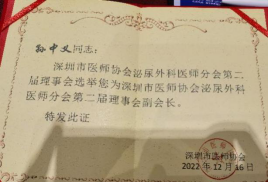 孙中义同志：
深圳市医师协会泌尿外科医师分会第二
届理事会选举您为深圳市医师协会泌尿外科
医师分会第二届理事会副会长。
特发此证
深圳市医师协会
2022年12月16日